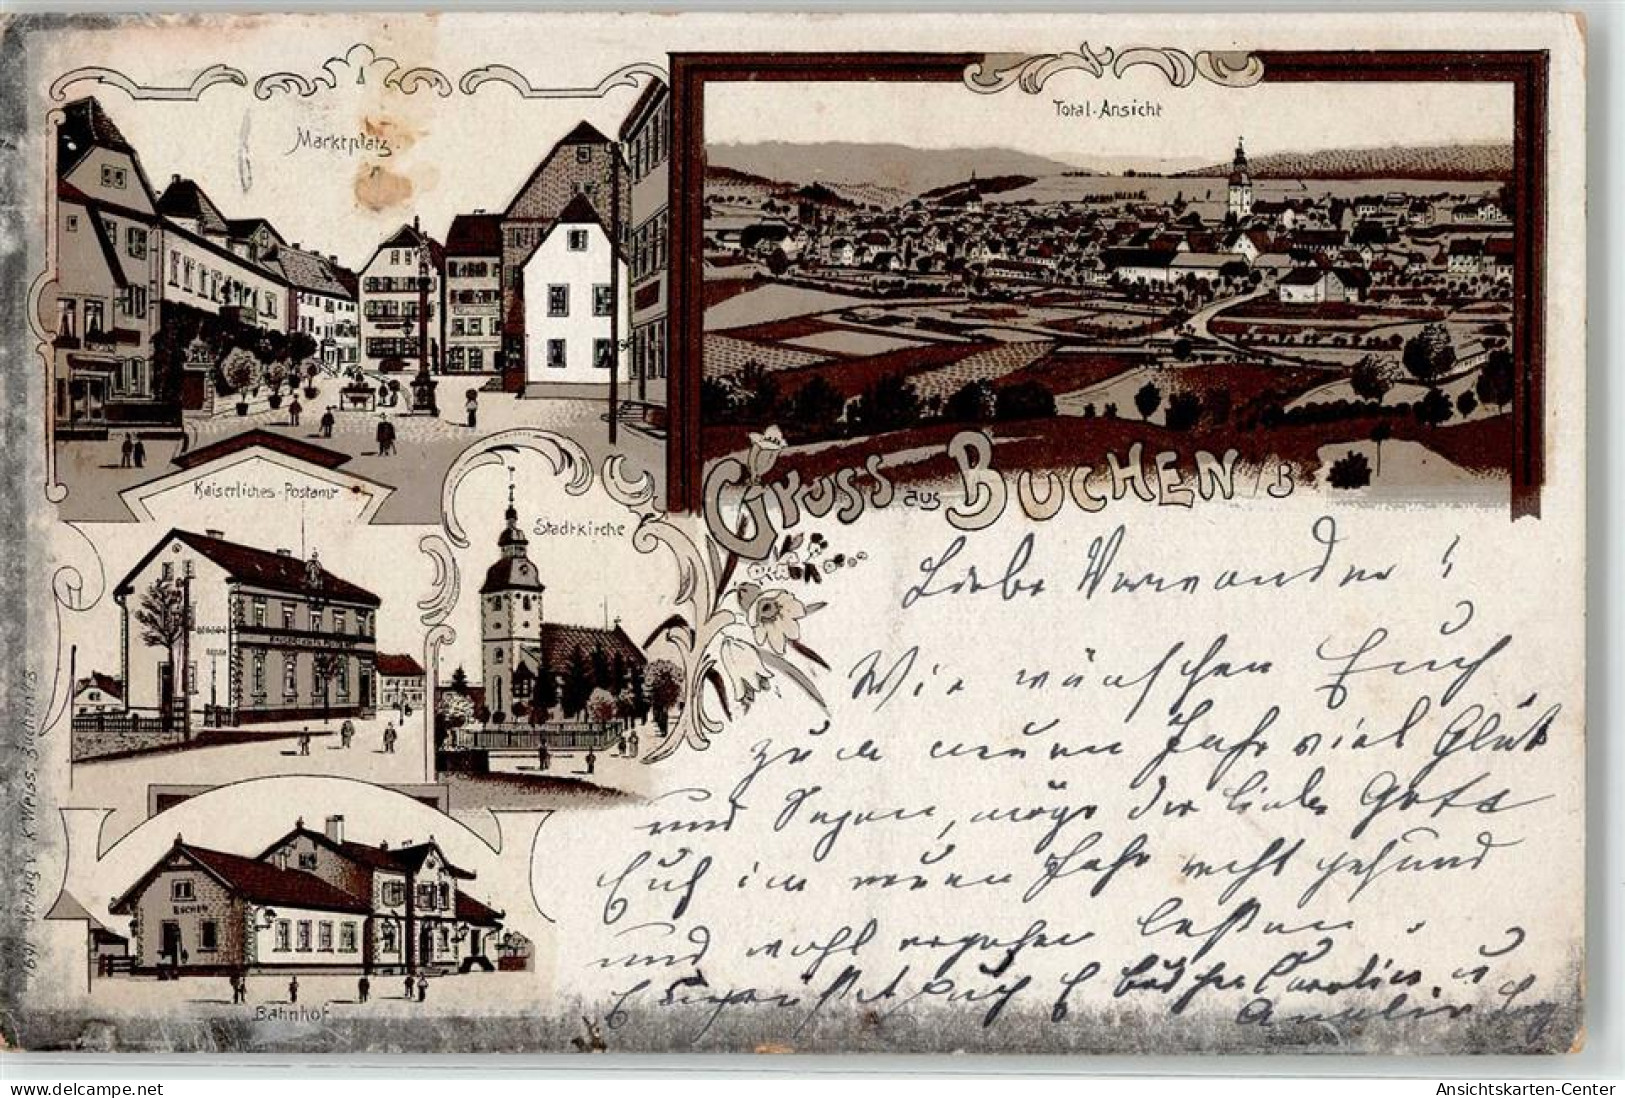 Marktplatz.
Total-Ansicht
Kaiserliches-Postamt
Stadtkirche
Gruss aus BUCHEN B
Liebe Verwandten!
Wir wünschen Euch
zum neuen Jahr viel Glük
und Segen, möge der liebe Gott
Euch im neuen Jahr recht gesund
und wohl ergehen lassen.
Euch Carolin u
BUCHEN
Bahnhof
Verlag v. K. Weiss, Buchen i/B
Ansichtskarten-Center